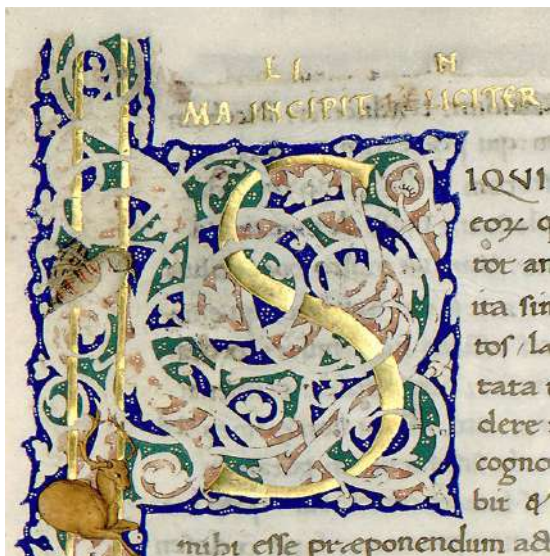 LI N
MA INCIPIT LICITER
SIQVI
eoꝝ q
tot an
ita sin
tos/la
tata
dere
cogno
bit &
mihi esse præponendum ad